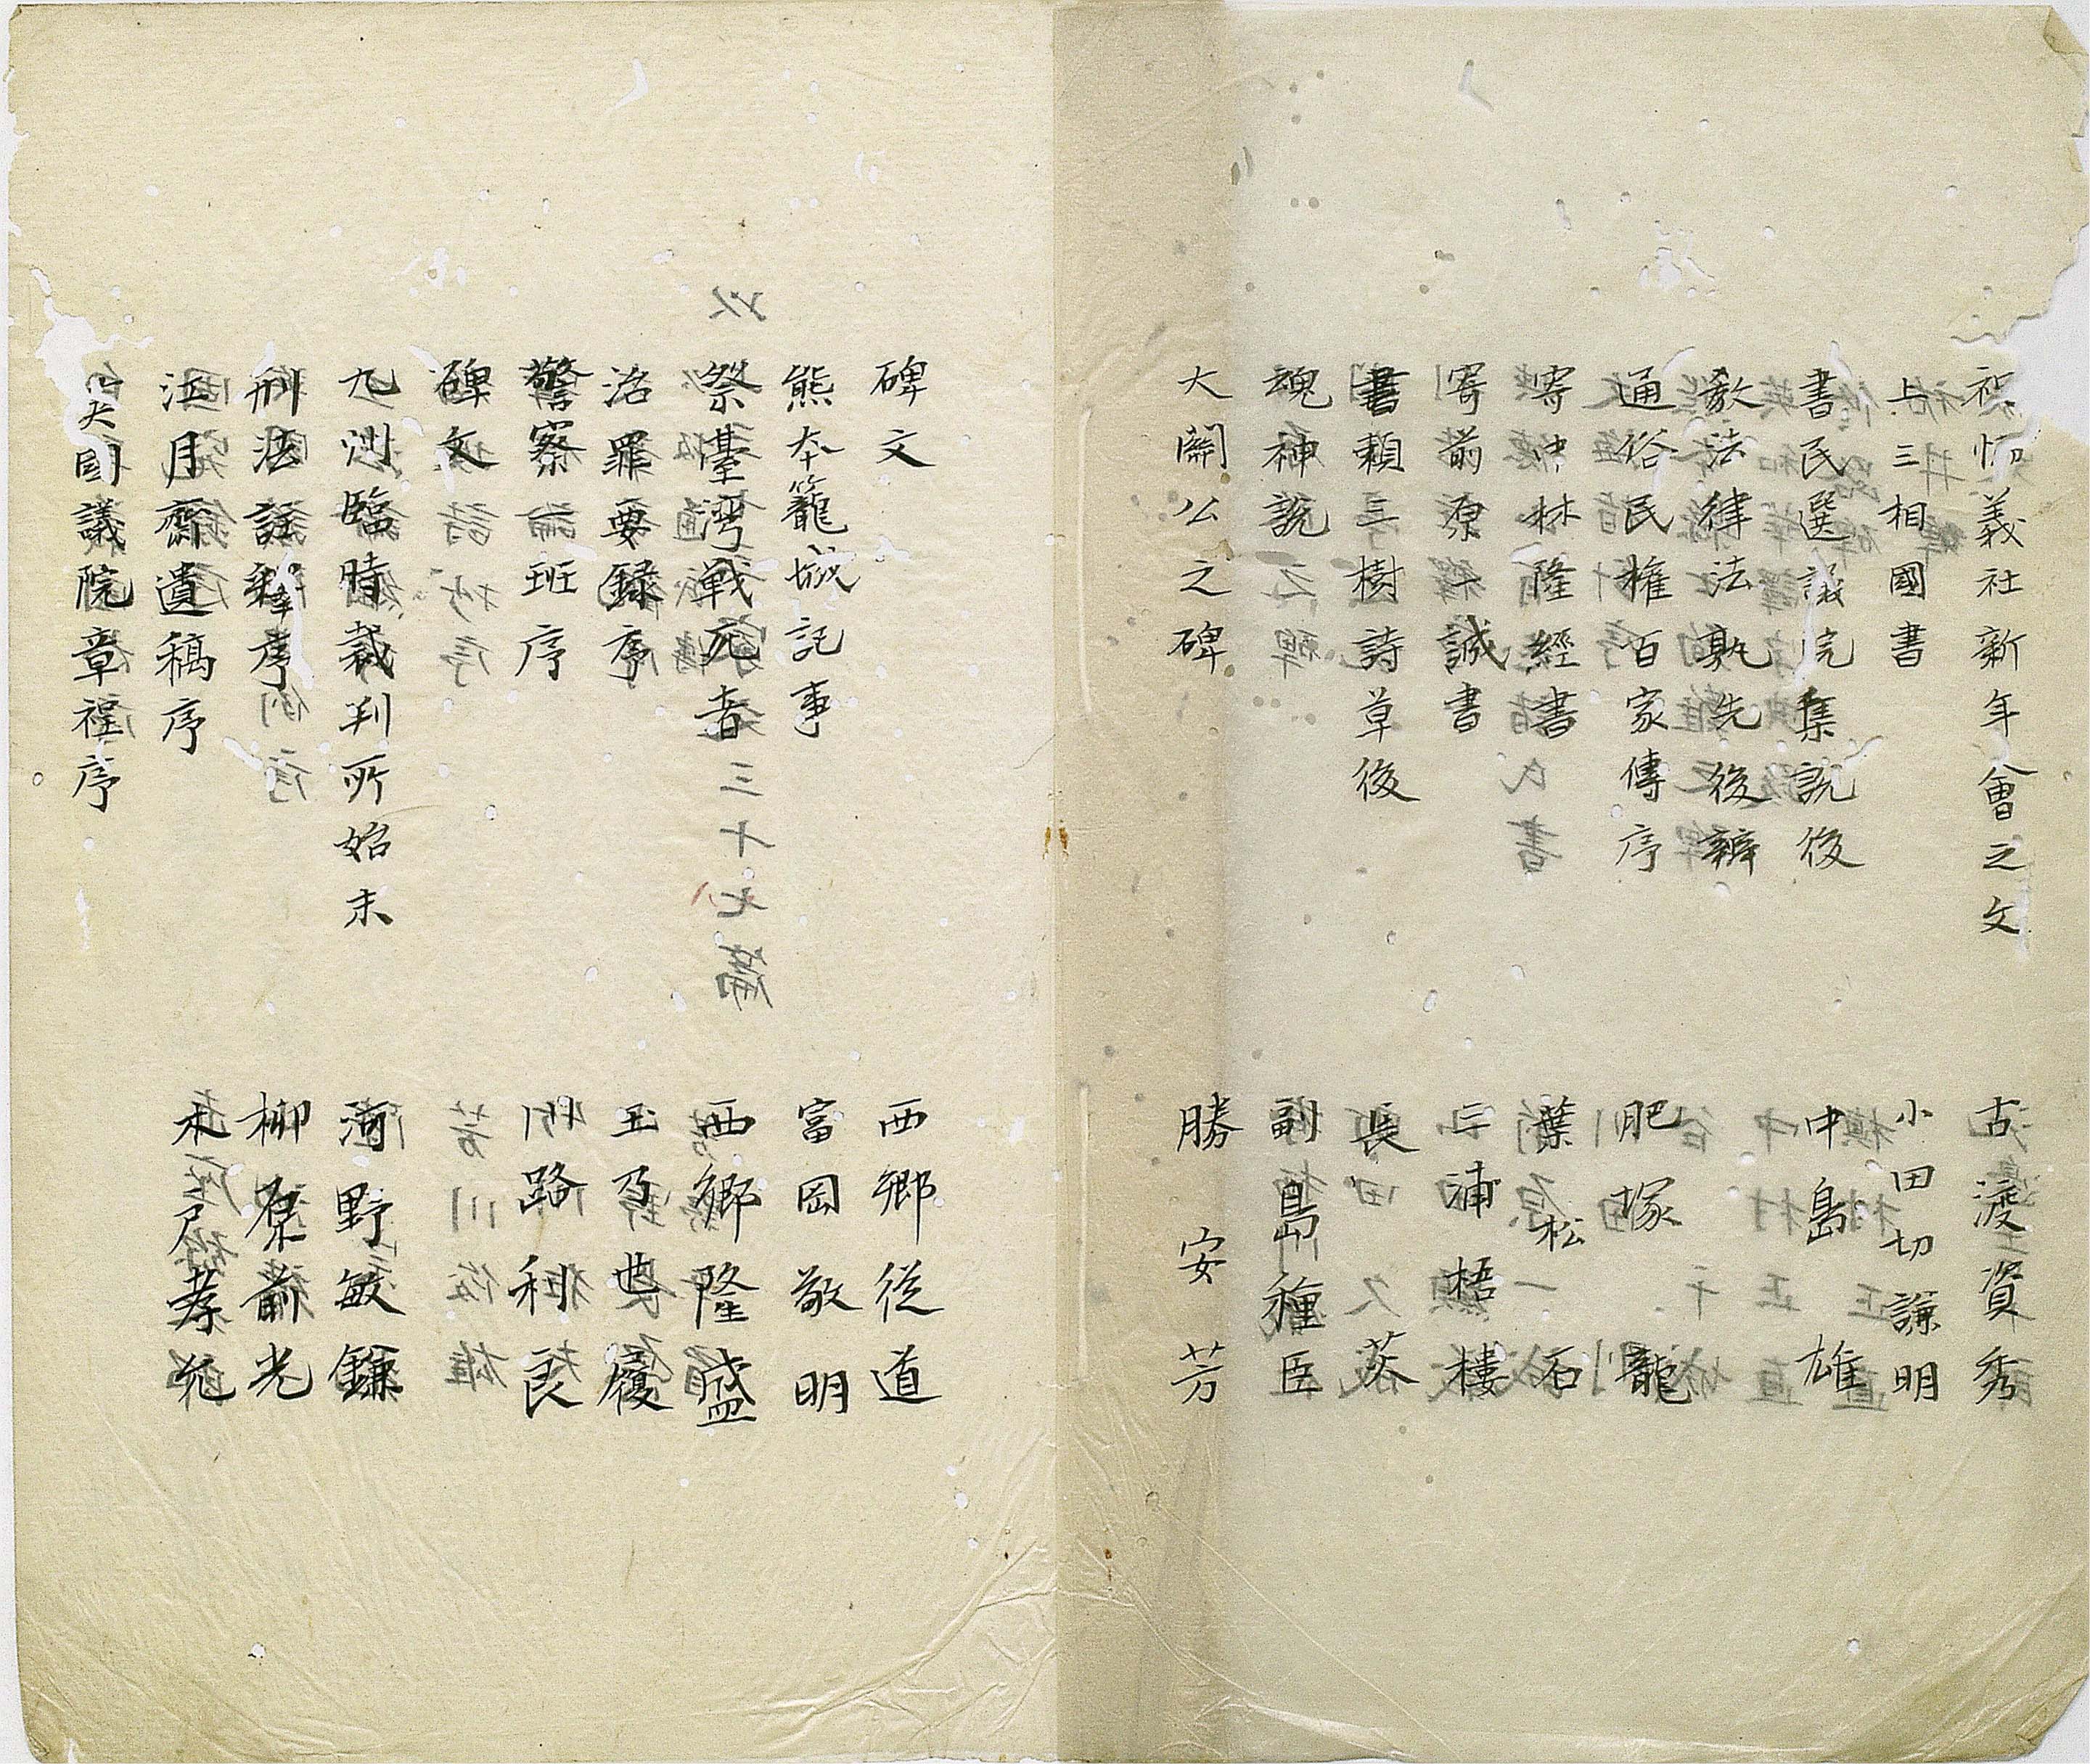 祝恒義社新年會之文 古渡資秀
上三相國書 小田切謙明
書民選議院集説後 中島雄
敎法律法孰先後辨
通俗民權百家傳序 肥塚龍
寄中林隆經書 葉松石
寄前原一誠書 三浦梧樓
書賴三樹詩草後 長茭
魂神説 副島種臣
大關公之碑 勝安芳
碑文 西郷従道
熊本籠城記事 富岡敬明
祭臺灣戦死者 西郷隆盛
治罪要録序 玉乃世履
警察一班序 川路利良
碑文
九州臨時裁判所始末 河野敏鎌
刑法註釋序 柳原前光
江月齋遺稿序 木戸孝允
英國議院章程序